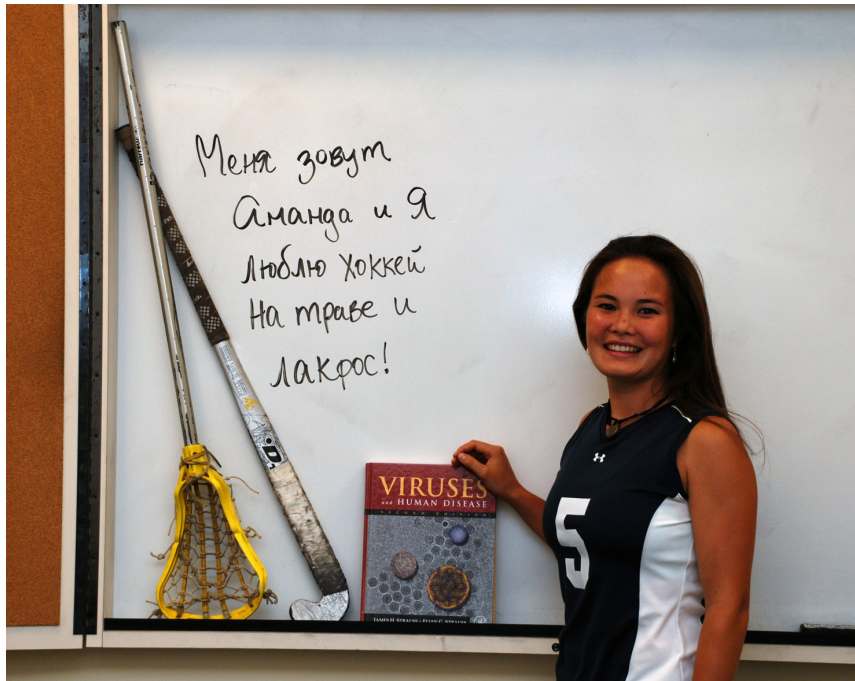 Меня зовут
Аманда и Я
люблю хоккей
на траве и
лакрос!
VIRUSES
and HUMAN DISEASE
SECOND EDITION
JAMES H. STRAUSS • ELLEN G. STRAUSS
5
D.